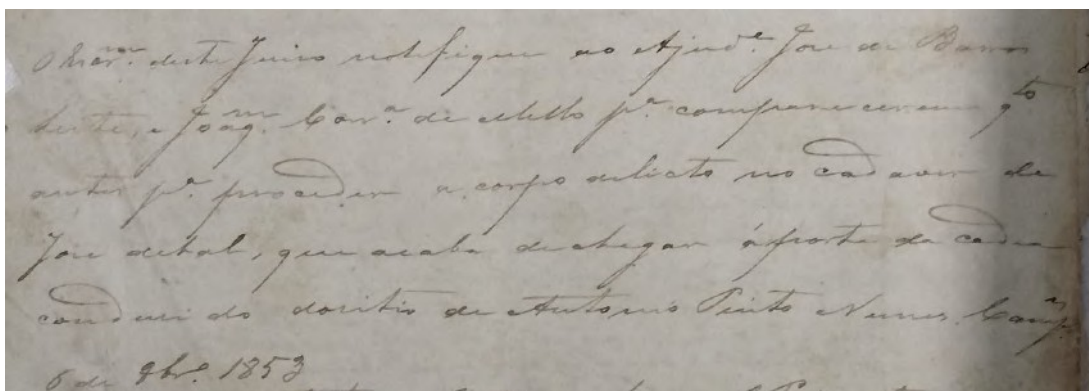 O Escr.am deste Juizo notifique ao Ajud.e Jose de Barros
Leite, e Joaq.m Corr.a de Mello p.a comparecerem q.to
antes p.a proceder a corpo delicto no cadaver de
Jose de tal, que acaba de chegar á porta da cadea
condusido do sitio de Antonio Pinto Nunes. Camp.as
6 de 9br.o 1853